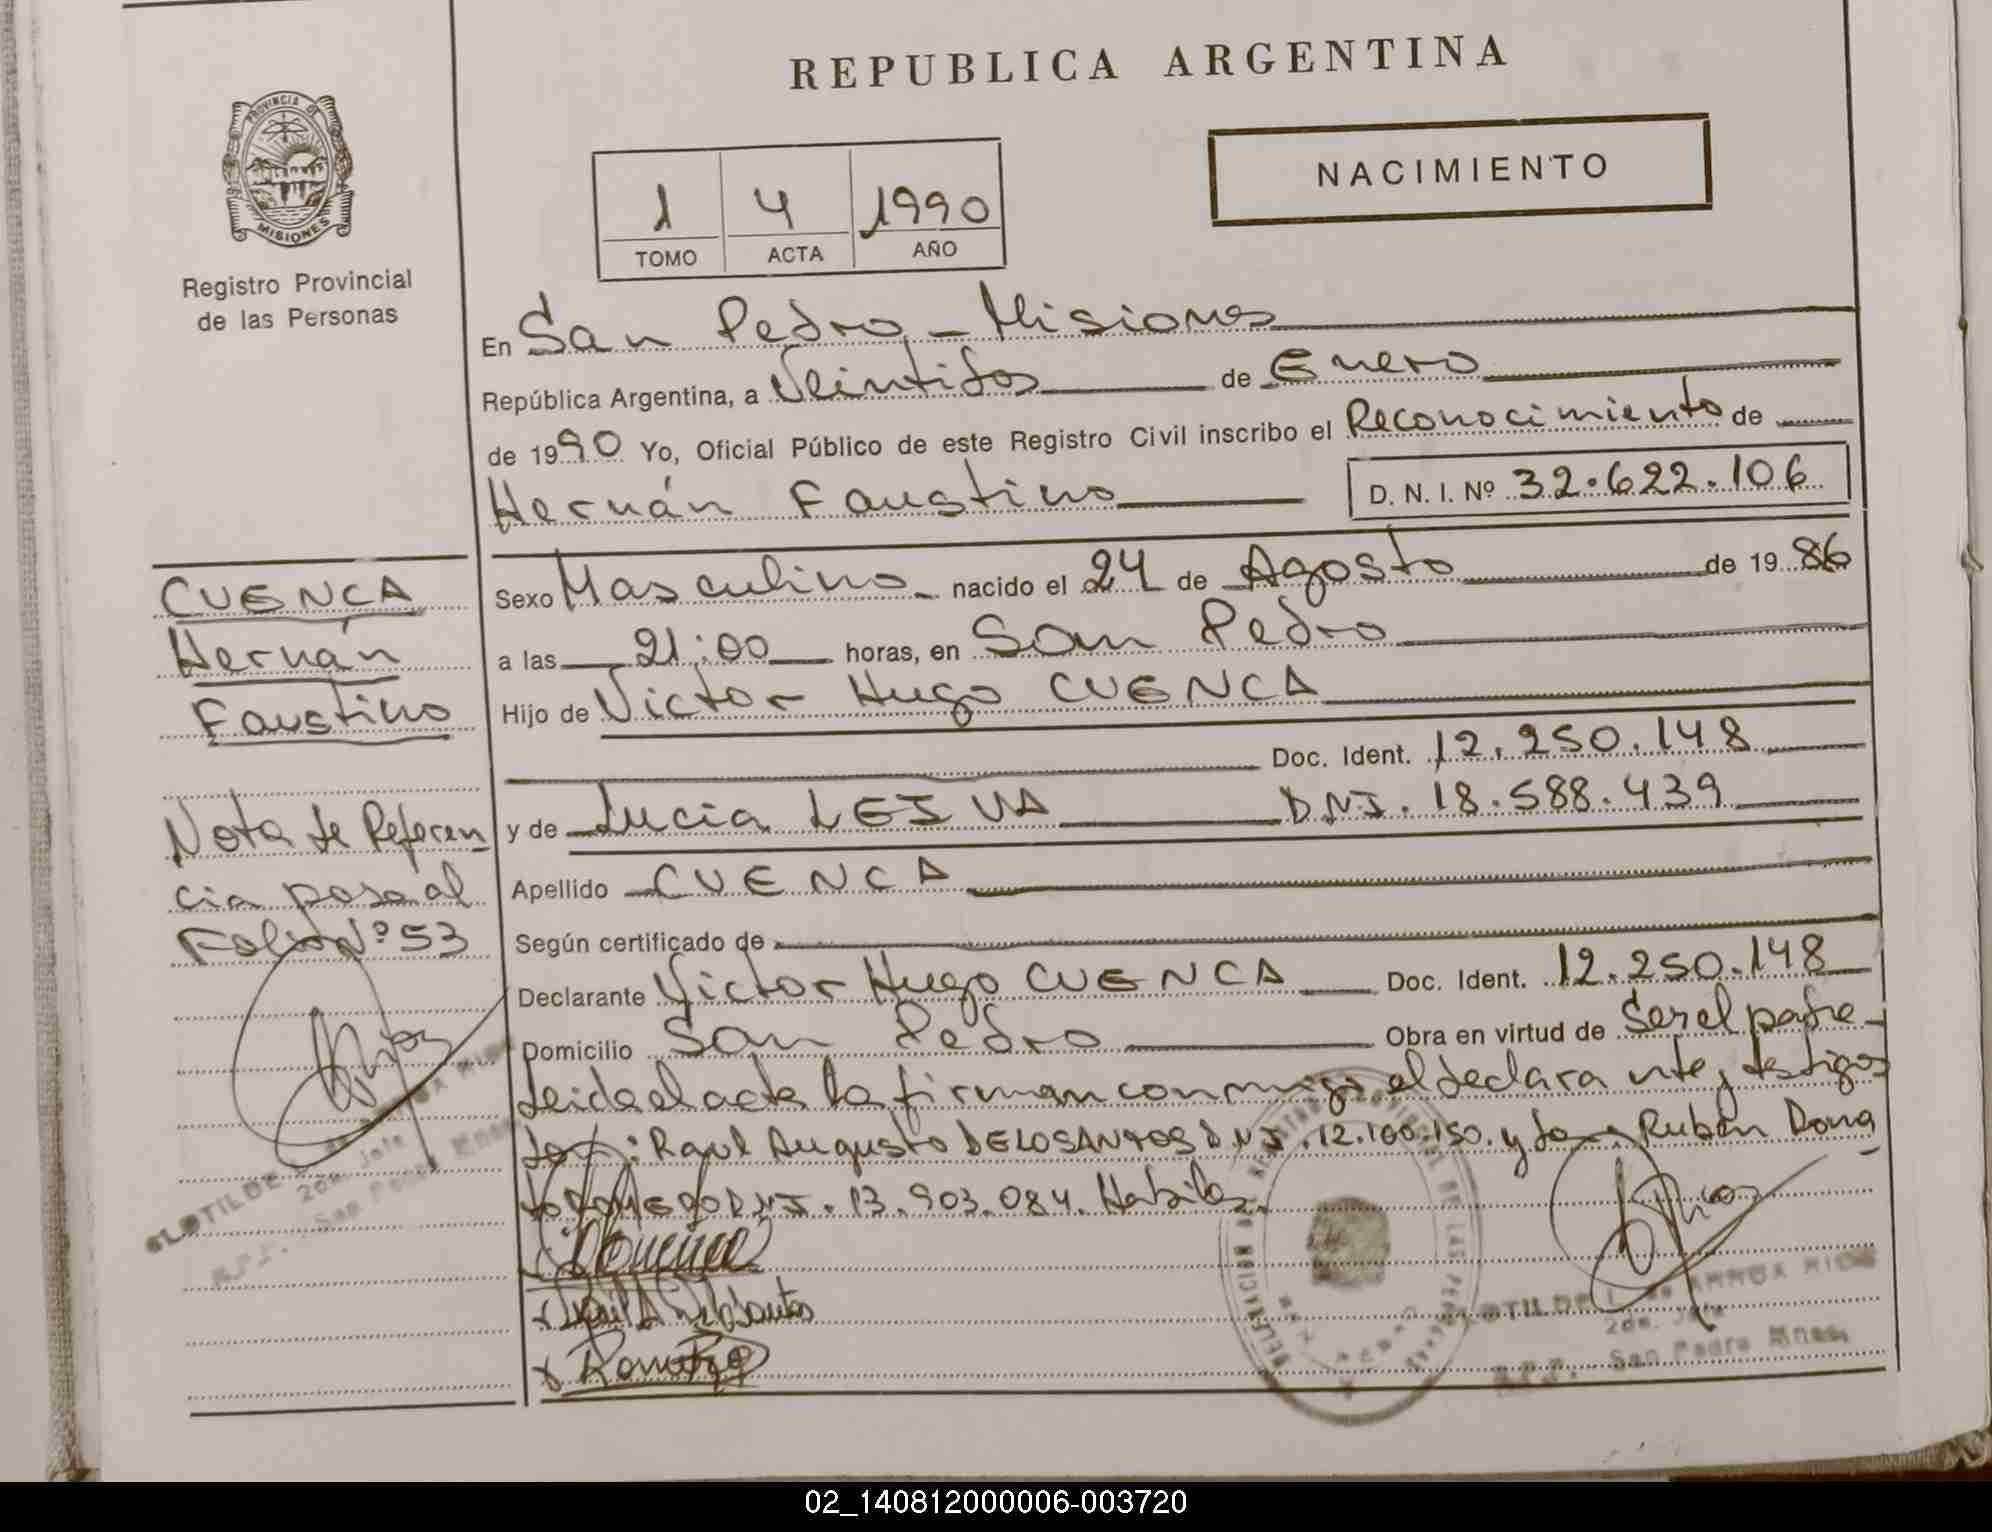 REPUBLICA ARGENTINA
PROVINCIA DE
MISIONES
Registro Provincial
de las Personas
NACIMIENTO
1 4 1990
TOMO ACTA AÑO
En San Pedro - Misiones
República Argentina, a Veintidos de Enero
de 1990 Yo, Oficial Público de este Registro Civil inscribo el Reconocimiento de
Hernán Faustino D. N. I. Nº 32.622.106
CUENCA
Hernán
Faustino
Sexo Masculino nacido el 24 de Agosto de 1986
a las 21:00 horas, en San Pedro
Hijo de Victor Hugo CUENCA
Doc. Ident. 12.250.148
y de Lucia LEIVA DNI. 18.588.439
Apellido CUENCA
Según certificado de
Declarante Victor Hugo CUENCA Doc. Ident. 12.250.148
Domicilio San Pedro Obra en virtud de Ser el padre-
Leida el acta la firman conmigo el declarante y testigos
Don: Raul Augusto DELOSANTOS DNI. 12.160.150. y Don Ruben Dona
to ROMERO DNI. 13.903.084. Habiles.
Nota de Referen
cia pasa al
Folio Nº 53
CLOTILDE
2da. Jefe
San Pedro Mnes.
REGISTRO PROVINCIAL DE LAS PERSONAS
CLOTILDE L. de ARROA RIOS
2da. Jefe
R.P.P. San Pedro Mnes.
02_140812000006-003720